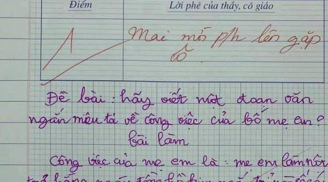 Điểm
Lời phê của thầy, cô giáo
1
Mai mời p/h lên gặp
cô
Đề bài: hãy viết một đoạn văn
ngắn miêu tả về công việc của bố mẹ em?
Bài làm
Công việc của mẹ em là: mẹ em làm